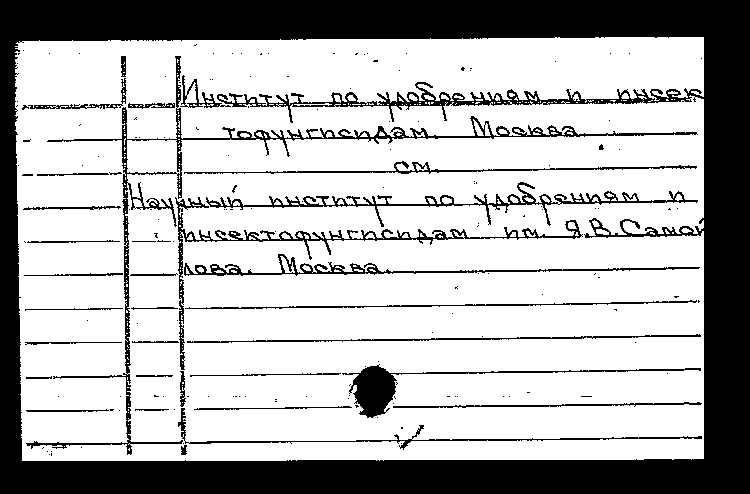 Институт по удобрениям и инсек
тофунгисидам. Москва
см.
Научный институт по удобрениям и
инсектофунгисидам им. Я.В.Самой
лова. Москва.